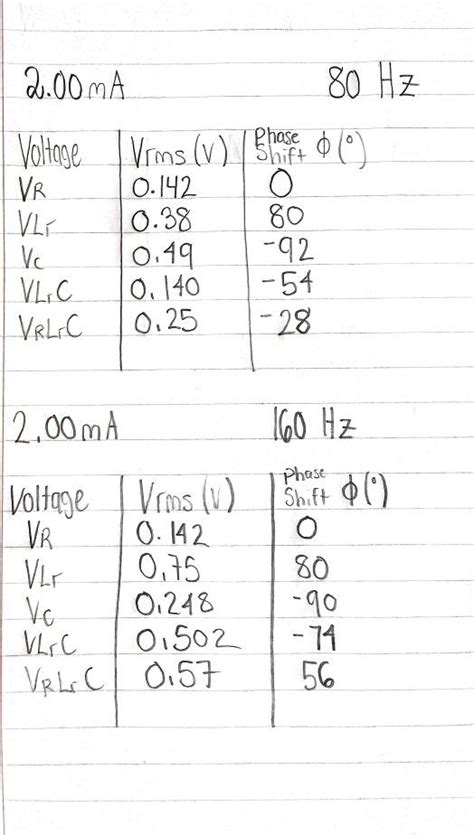 2.00mA 80 Hz
Voltage Vrms (V) Phase Shift ϕ(°)
VR 0.142 0
VLr 0.38 80
Vc 0.49 -92
VLrC 0.140 -54
VRLrC 0.25 -28
2.00mA 160 Hz
Voltage Vrms (V) Phase Shift ϕ(°)
VR 0.142 0
VLr 0.75 80
Vc 0.248 -90
VLrC 0.502 -74
VRLrC 0.57 56